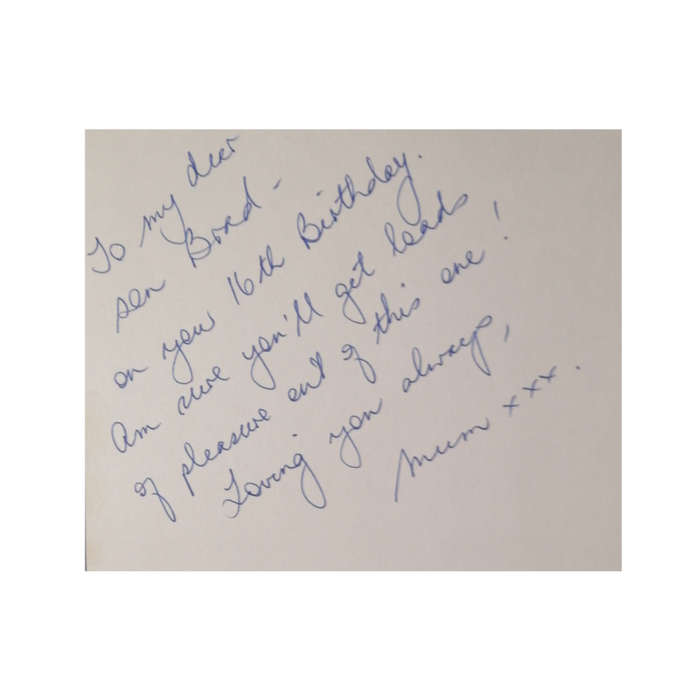 To my dear
son Brad -
on your 16th Birthday.
Am sure you'll get loads
of pleasure out of this one!
Loving you always,
Mum xxx.